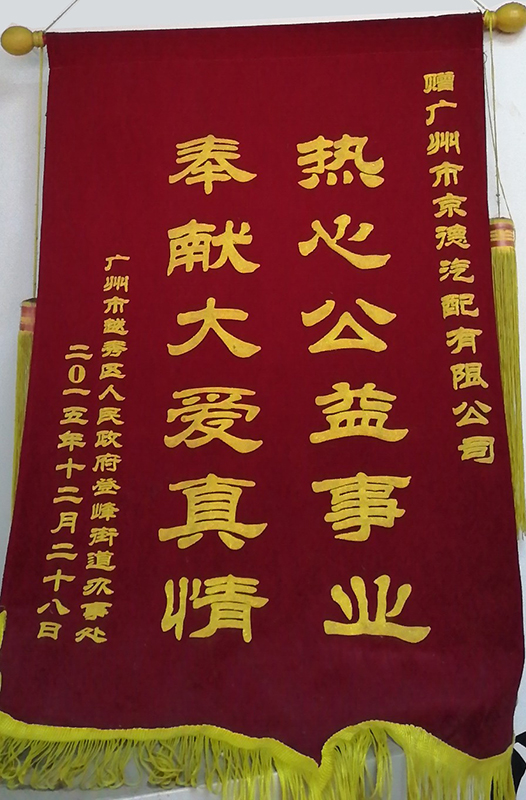 赠广州市京德汽配有限公司
热心公益事业
奉献大爱真情
广州市越秀区人民政府登峰街道办事处
二0一五年十二月二十八日